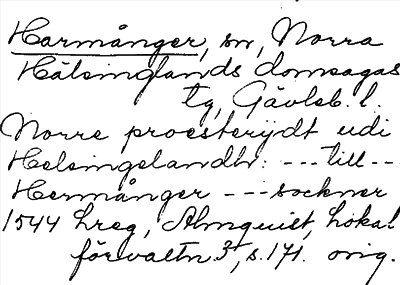 Harmånger, sn, Norra
Hälsinglands domsagas
tg, Gävleb. l.
Norre proesterijdt udi
Helsingelandh: --- till --
Hermånger --- sockner
1544 hreg, Almquist, Lokal
förvaltn 3, s. 171. orig.